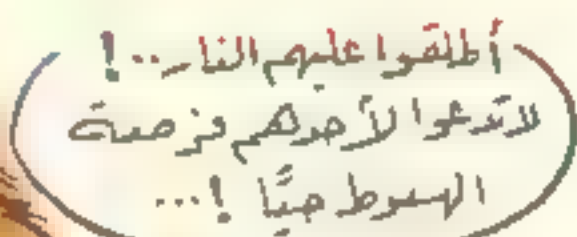 أطلقوا عليهم النار..!
لاتدعوا لأحدهم فرصة
الهبوط حيًّا !...